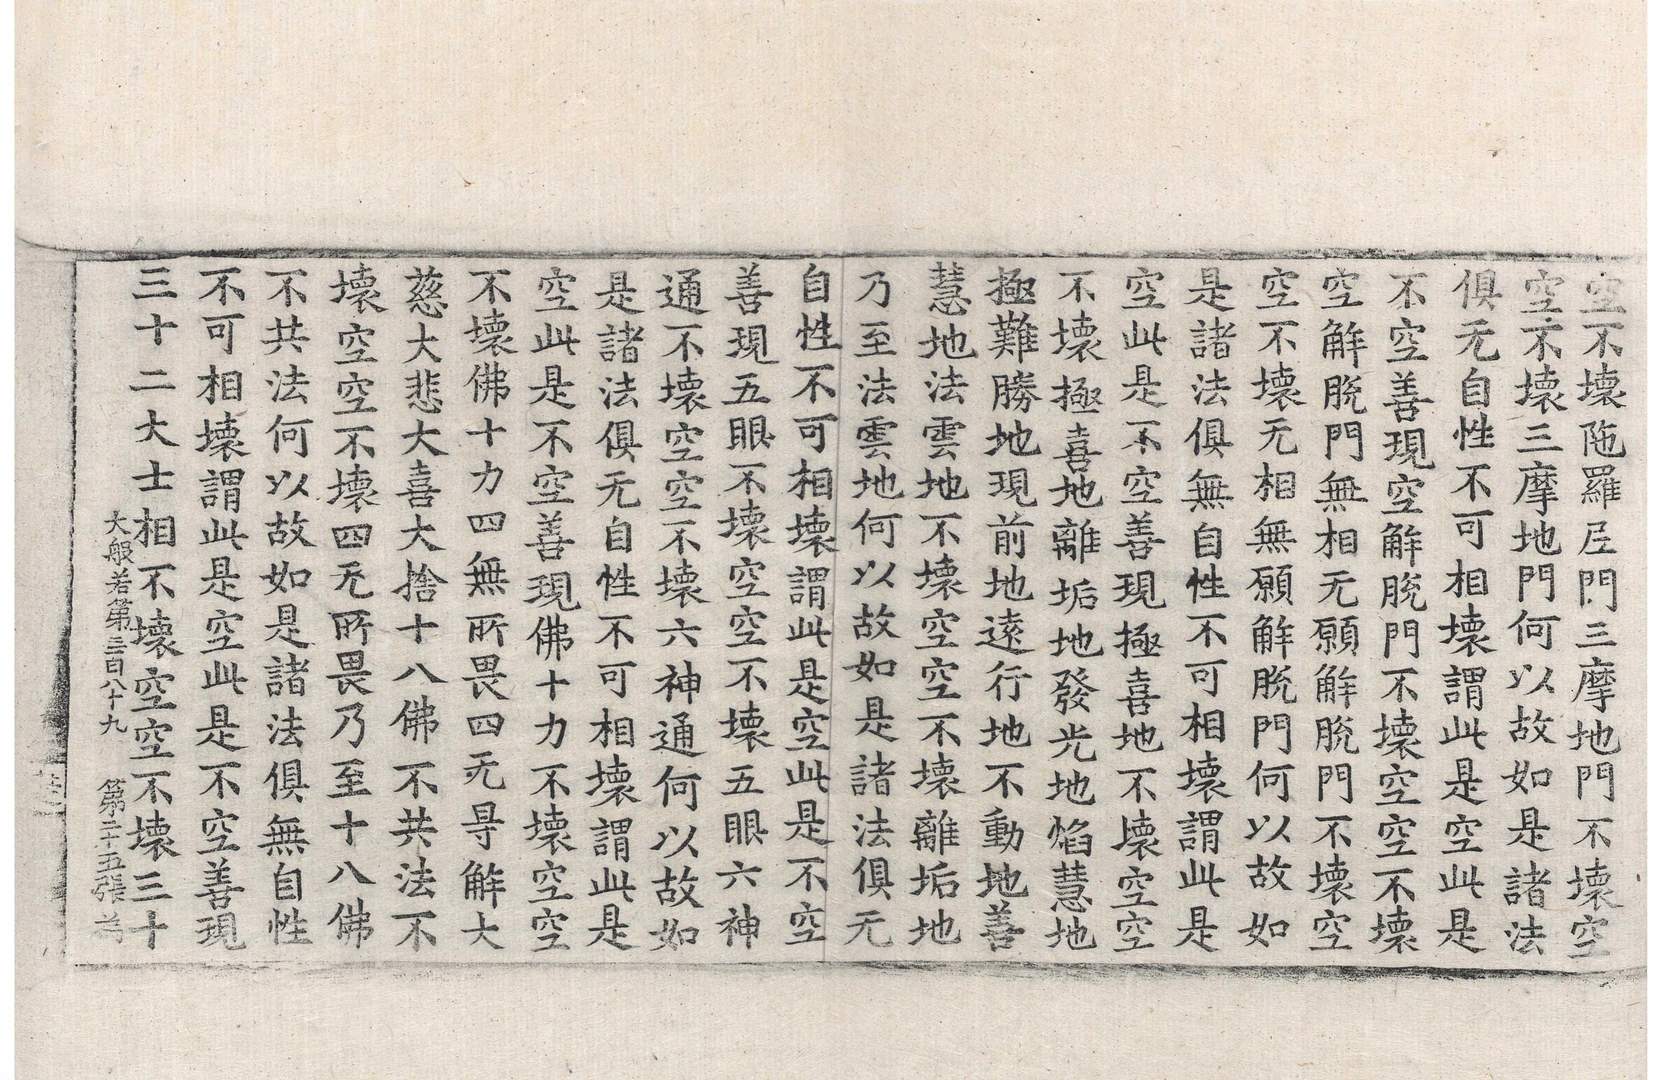 空不壞陁羅尼門三摩地門不壞空
空不壞三摩地門何以故如是諸法
俱无自性不可相壞謂此是空此是
不空善現空解脫門不壞空空不壞
空解脫門無相无願解脫門不壞空
空不壞无相無願解脫門何以故如
是諸法俱無自性不可相壞謂此是
空此是不空善現極喜地不壞空空
不壞極喜地離垢地發光地焰慧地
極難勝地現前地遠行地不動地善
慧地法雲地不壞空空不壞離垢地
乃至法雲地何以故如是諸法俱无
自性不可相壞謂此是空此是不空
善現五眼不壞空空不壞五眼六神
通不壞空空不壞六神通何以故如
是諸法俱无自性不可相壞謂此是
空此是不空善現佛十力不壞空空
不壞佛十力四無所畏四无㝵解大
慈大悲大喜大捨十八佛不共法不
壞空空不壞四无所畏乃至十八佛
不共法何以故如是諸法俱無自性
不可相壞謂此是空此是不空善現
三十二大士相不壞空空不壞三十
大般若第三百八十九 第二十五張